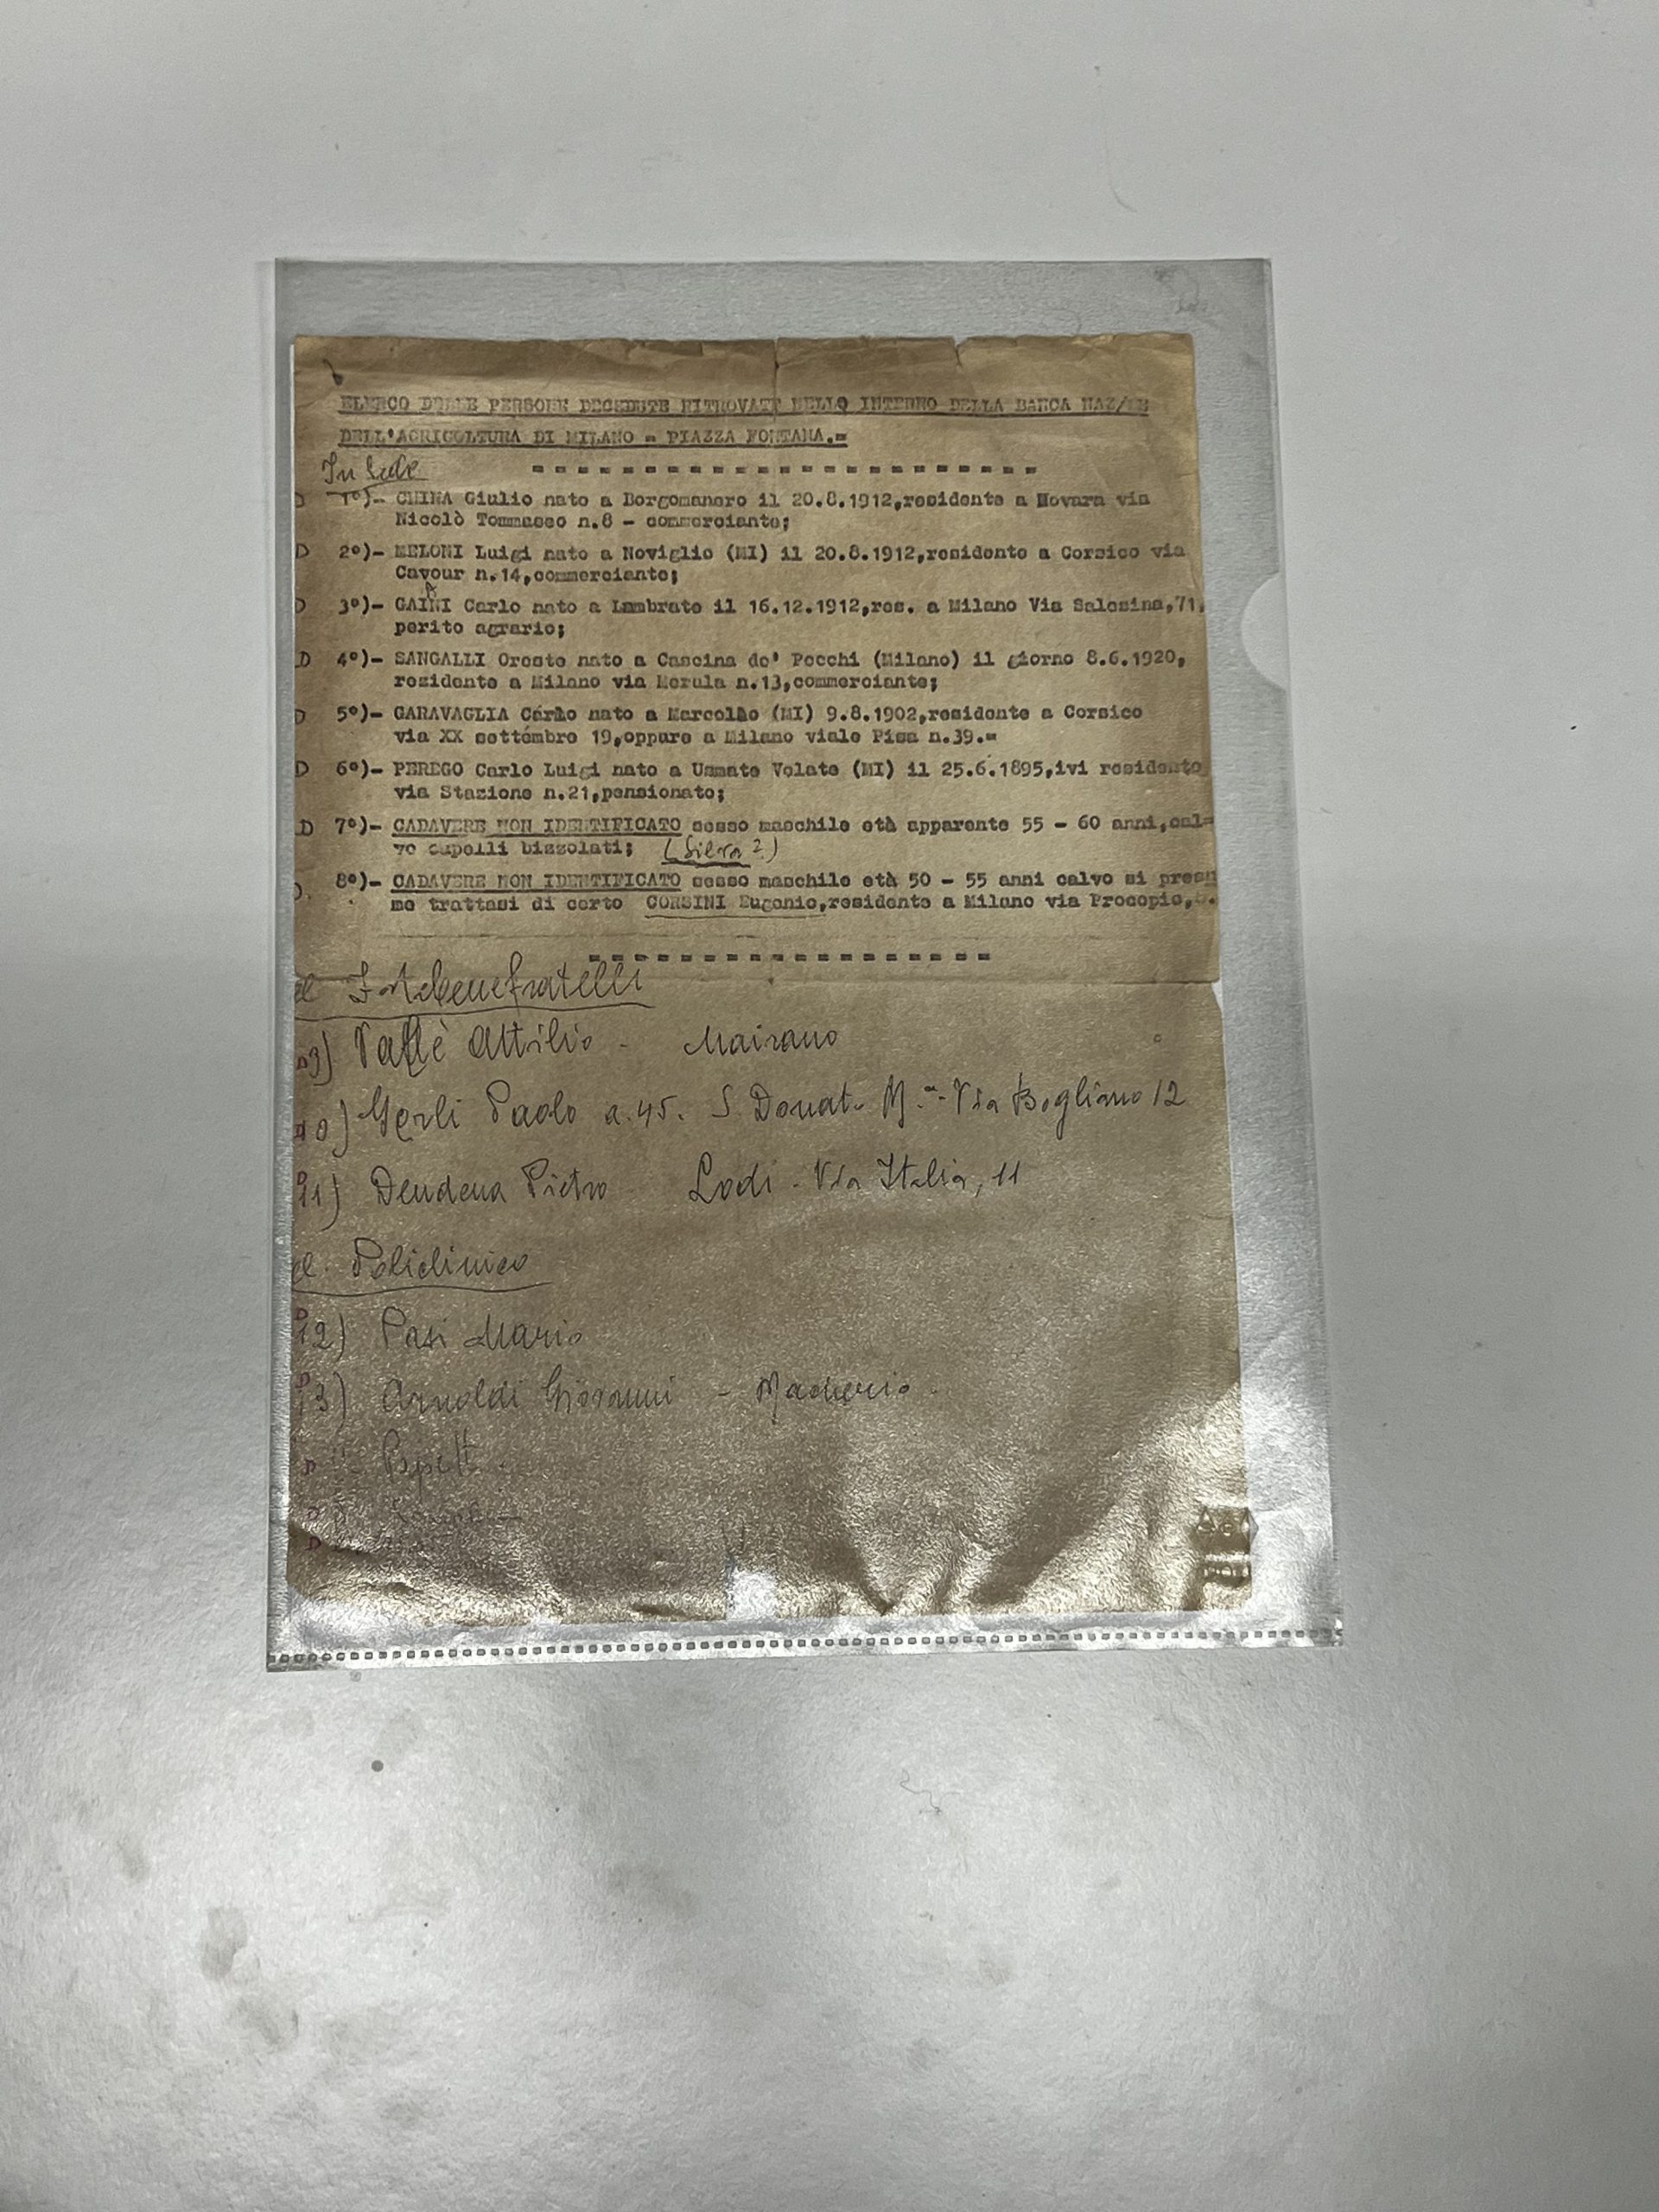 ELENCO DELLE PERSONE DECEDUTE RITROVATE NELLO INTERNO DELLA BANCA NAZ/LE
DELL'AGRICOLTURA DI MILANO = PIAZZA FONTANA.=
In Sede
D 1°)- CHINA Giulio nato a Borgomanero il 20.8.1912,residente a Novara via
Nicolò Tommaseo n.8 - commerciante;
D 2°)- MELONI Luigi nato a Noviglio (MI) il 20.8.1912,residente a Corsico via
Cavour n.14,commerciante;
D 3°)- GAINI Carlo nato a Lambrate il 16.12.1912,res. a Milano Via Salesina,71,
perito agrario;
D 4°)- SANGALLI Oreste nato a Cascina de' Pecchi (Milano) il giorno 8.6.1920,
residente a Milano via Merula n.13,commerciante;
D 5°)- GARAVAGLIA Carlo nato a Marcollo (MI) 9.8.1902,residente a Corsico
via XX settembre 19,oppure a Milano viale Pisa n.39.=
D 6°)- PEREGO Carlo Luigi nato a Usmate Velate (MI) il 25.6.1895,ivi residente
via Stazione n.21,pensionato;
D 7°)- CADAVERE NON IDENTIFICATO sesso maschile età apparente 55 - 60 anni,cal=
vo capelli bizzolati; (Silva?)
D. 8°)- CADAVERE NON IDENTIFICATO sesso maschile età 50 - 55 anni calvo si presu
me trattasi di certo CORSINI Eugenio,residente a Milano via Procopio,
al Fatebenefratelli
D 9) Vallè Attilio - Mairano
D 10) Gerli Paolo a. 45. S. Donato M.se - Via Bogliano 12
D 11) Dendena Pietro Lodi - Via Italia, 11
al Policlinico
D 12) Pasi Mario
D 13) Arnoldi Giovanni - Macherio
D
D
D